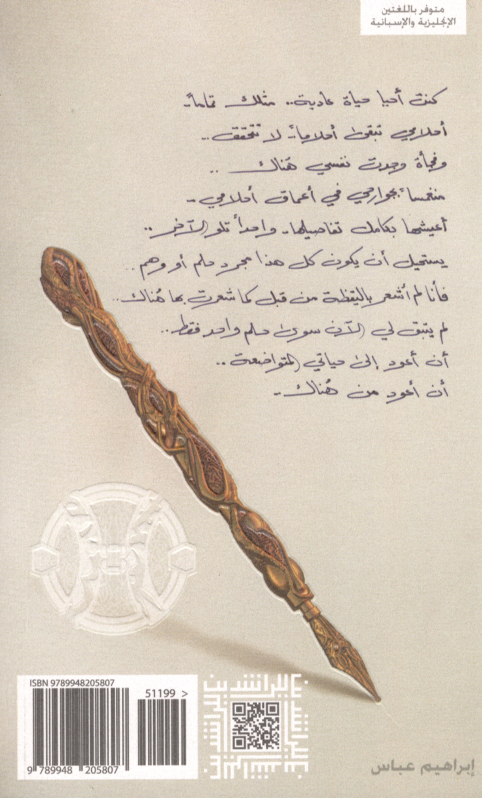 متوفر باللغتين
الإنجليزية والإسبانية
كنت أحيا حياة عادية.. مثلك تماماً..
أحلامي تبقى أحلاماً.. لا تتحقق..
وفجأة وجدت نفسي هُناك ..
منغمساً بجوارحي في أعماق أحلامي..
أعيشها بكامل تفاصيلها.. واحداً تلو الآخر..
يستحيل أن يكون كل هذا مجرد حلم أو وهم..
فأنا لم أشعر باليقظة من قبل كما شعرت بها هُناك..
لم يتبق لي الآن سوى حلم واحد فقط..
أن أعود إلى حياتي المتواضعة ..
أن أعود من هُناك..
ISBN 9789948205807
51199 >
9 789948 205807
إبراهيم عباس